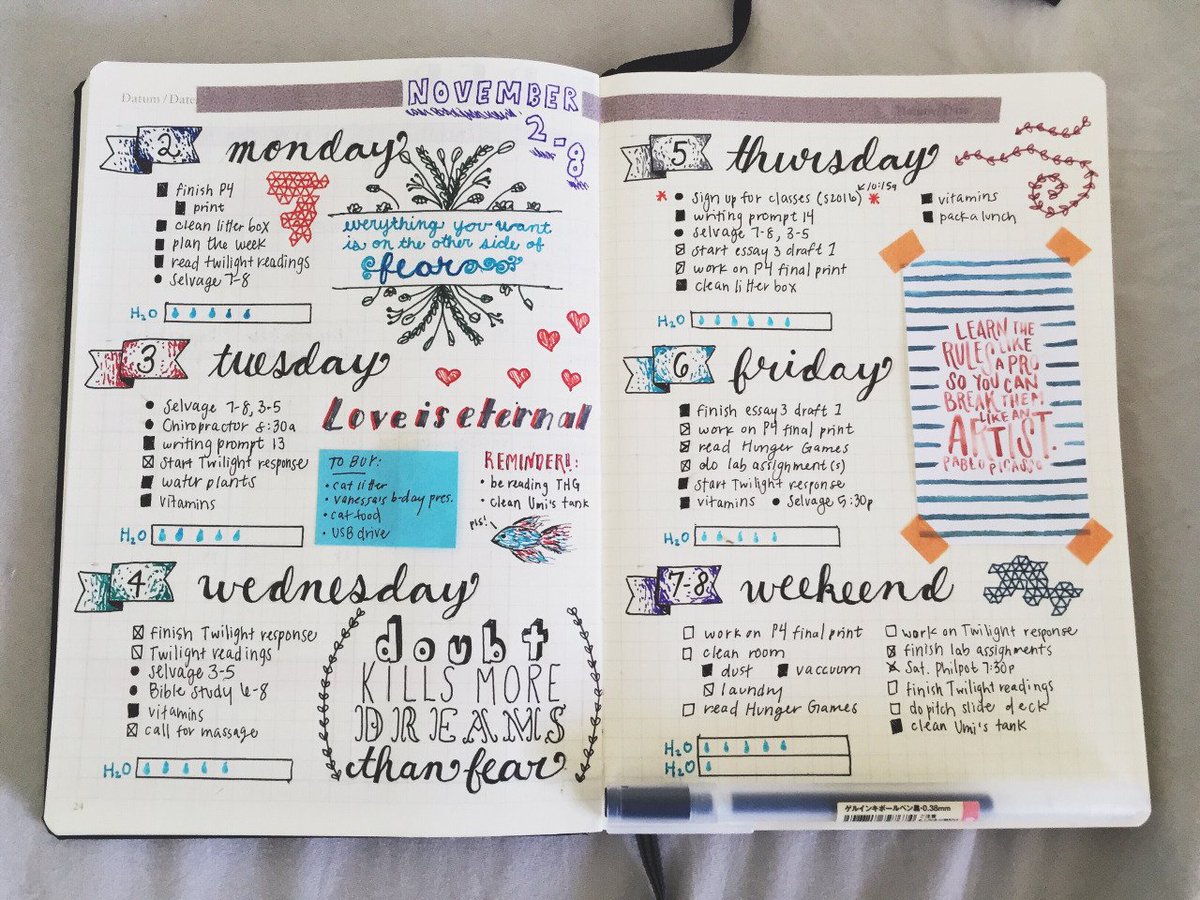 Datum / Date
NOVEMBER
2-8
2 monday
finish P4
print
clean litter box
plan the week
read twilight readings
Selvage 7-8
H2O
everything you want
is on the other side of
fear
3 tuesday
Selvage 7-8, 3-5
Chiropractor 8:30a
writing prompt 13
start Twilight response
water plants
vitamins
H2O
Love is eternal
TO BUY:
cat litter
vanessa's b-day pres.
cat food
USB drive
REMINDER!:
be reading THG
clean Umi's tank
pls!
4 wednesday
finish Twilight response
Twilight readings
Selvage 3-5
Bible Study 6-8
vitamins
call for massage
H2O
doubt
KILLS MORE
DREAMS
than fear
24
5 thursday
10:15a
* Sign up for classes (S2016) *
writing prompt 14
selvage 7-8, 3-5
start essay 3 draft 1
work on P4 final print
clean litter box
vitamins
pack a lunch
H2O
6 friday
finish essay 3 draft 1
work on P4 final print
read Hunger Games
do lab assignment(s)
start Twilight response
vitamins • Selvage 5:30p
H2O
LEARN THE
RULES LIKE
A PRO
SO YOU CAN
BREAK THEM
LIKE AN
ARTIST.
PABLO PICASSO
7-8 weekeend
work on P4 final print
clean room
dust vaccuum
laundry
read Hunger Games
work on Twilight response
finish lab assignments
Sat. Philpot 7:30p
finish Twilight readings
do pitch slide deck
clean Umi's tank
H2O
H2O
ゲルインキボールペン黒・0.38mm